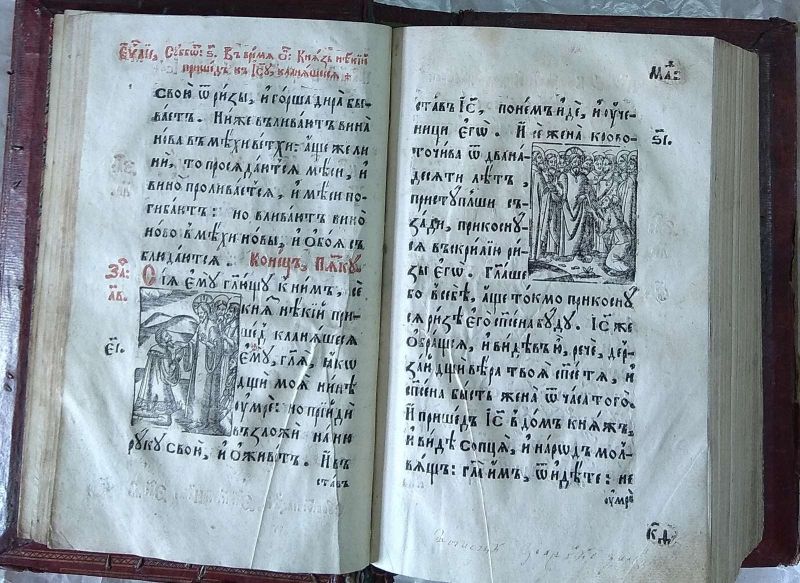 Еѵⷢ҇лїи, Сꙋббѡⷮ: ѕ҃. Въ время ѻ҃: Князь нѣкїй
пришеⷣ къ Іс҃ꙋ, кланяшеся
своѝ ѿ ризы, и҆ горша дира бы-
ваетъ. Ниже вливаютъ вина
нова въ мѣхи ветхи: аще ли
ни, то просядꙋтся мѣси, и҆
вино пролиетъся, и҆ мѣси по-
гибаютъ: но вливаютъ вино
ново в мѣхи новы, и҆ обоя съ-
блюдаются. Конецъ, Пѧⷦ҇кꙋ.
За҃:
Сїя е҆мꙋ гл҃ющꙋ к ниⷨ, се
кн҃ѕь нѣкїй при-
шеⷣ кланяшеся
е҃і.
е҆мꙋ, гл҃я, ꙗкѡ
дщи моя нн҃ѣ
ꙋмре: но прїйди
възложи на ню
рꙋкꙋ своѝ, и҆ ѡживетъ. Й въ
ставъ
Маⷴ:
ставъ Іс҃, по немъ иде, и҆ ꙋче-
ѕ҃і.
ници е҆гѡ. Й се жена крово-
точива ѿ двана-
десяти лѣтъ,
пристꙋпльши съ-
зади, прикоснꙋ-
ся въскрилїи ри-
зы е҆гѡ. Гл҃аше
бо в себѣ, аще токмо прикоснꙋ
ся ризѣ е҆го сп҃сена бꙋдꙋ. Іс҃ же
ѻбращся, и҆ видѣвъ и҆, рече, дер-
зай дщи вѣра твоя сп҃се тя, и҆
сп҃сена бысть жена ѿ часа того.
Й пришедъ Іс҃ в домъ княжъ,
и҆ видѣ сопця, и҆ народъ мол-
вящъ: гл҃а им, ѿидѣте: не
ꙋмре
к҃д